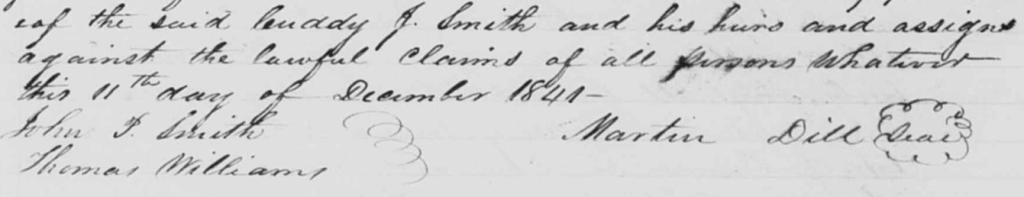 of the said Cuddy J. Smith and his heirs and assigns
against the lawful claims of all persons whatever
this 11th day of December 1841-
John P. Smith Martin Dill Seal
Thomas Williams